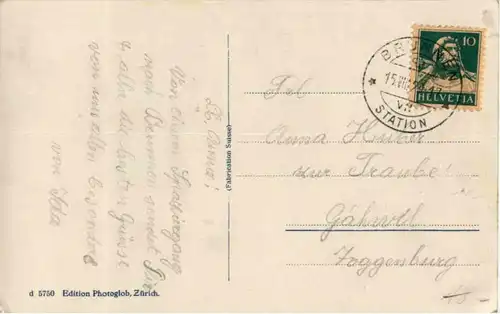 Lb. Anna!
Von einem Spaziergang
nach Brunnen sendet Dir
& allen die besten Grüsse
von uns allen besonders
von Ida
(Fabrication Suisse)
d 5750 Edition Photoglob, Zürich.
10
HELVETIA
BRUNNEN
15.VII.
STATION
Frl.
Anna Huber
zur Traube
Toggenburg